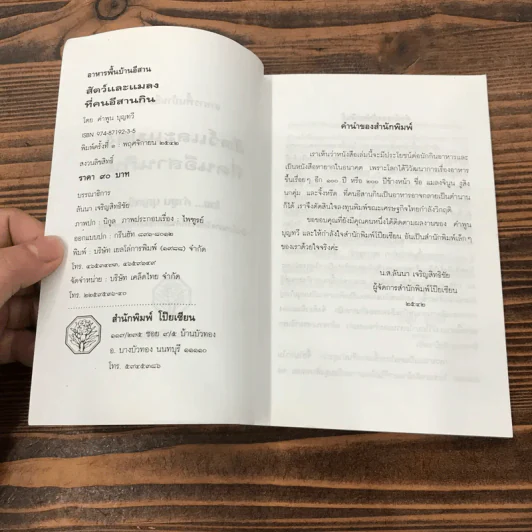 อาหารพื้นบ้านอีสาน
สัตว์และแมลง
ที่คนอีสานกิน
โดย คำพูน บุญทวี
ISBN 974-87192-3-5
พิมพ์ครั้งที่ ๑ : พฤศจิกายน ๒๕๔๒
สงวนลิขสิทธิ์
ราคา ๙๐ บาท
บรรณาธิการ
ลันนา เจริญสิทธิชัย
ภาพปก : นิกูล ภาพประกอบเรื่อง : ไพฑูรย์
ออกแบบปก : กรีนฮิท
พิมพ์ : บริษัท เยลโล่การพิมพ์ (๑๙๘๘) จำกัด
โทร.
จัดจำหน่าย : บริษัท เคล็ดไทย จำกัด
โทร. ๒๒๕๙๕๓๖-๔๐
สำนักพิมพ์ โป๊ยเซียน
๑๑๗/๖๗๕ ซอย ๙/๕ บ้านบัวทอง
อ. บางบัวทอง นนทบุรี ๑๑๑๑๐
โทร.
คำนำของสำนักพิมพ์
เราเห็นว่าหนังสือเล่มนี้จะมีประโยชน์ต่อนักกินอาหารและ
เป็นหนังสือหายากในอนาคต เพราะโลกได้วิวัฒนาการเรื่องอาหาร
ขึ้นเรื่อยๆ อีก ๑๓๐ ปี หรือ ๒๐๐ ปีข้างหน้า ชื่อ แมลงจินูน
และจิ้งหรีด ที่คนอีสานกินเป็นอาหารอาจกลายเป็นตำนาน
ก็ได้ เราจึงตัดสินใจลงทุนพิมพ์ขณะเศรษฐกิจไทยกำลังวิกฤติ
ขอขอบคุณที่ยังมีคุณคนหนึ่งได้ติดตามผลงานของ คำพูน
บุญทวี และให้กำลังใจสำนักพิมพ์โป๊ยเซียน อันเป็นสำนักพิมพ์เล็กๆ
ของเราด้วยใจจริงค่ะ
น.ส.ลันนา เจริญสิทธิชัย
ผู้จัดการสำนักพิมพ์โป๊ยเซียน
๒๕๔๒